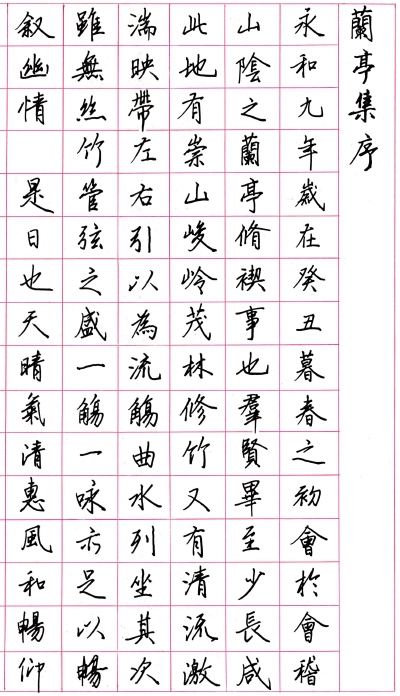 蘭亭集序
永和九年歲在癸丑暮春之初會於會稽
山陰之蘭亭脩禊事也羣賢畢至少長咸
此地有崇山峻岭茂林修竹又有清流激
湍映帶左右引以為流觴曲水列坐其次
雖無絲竹管弦之盛一觴一咏亦足以暢
叙幽情 是日也天晴氣清惠風和暢仰